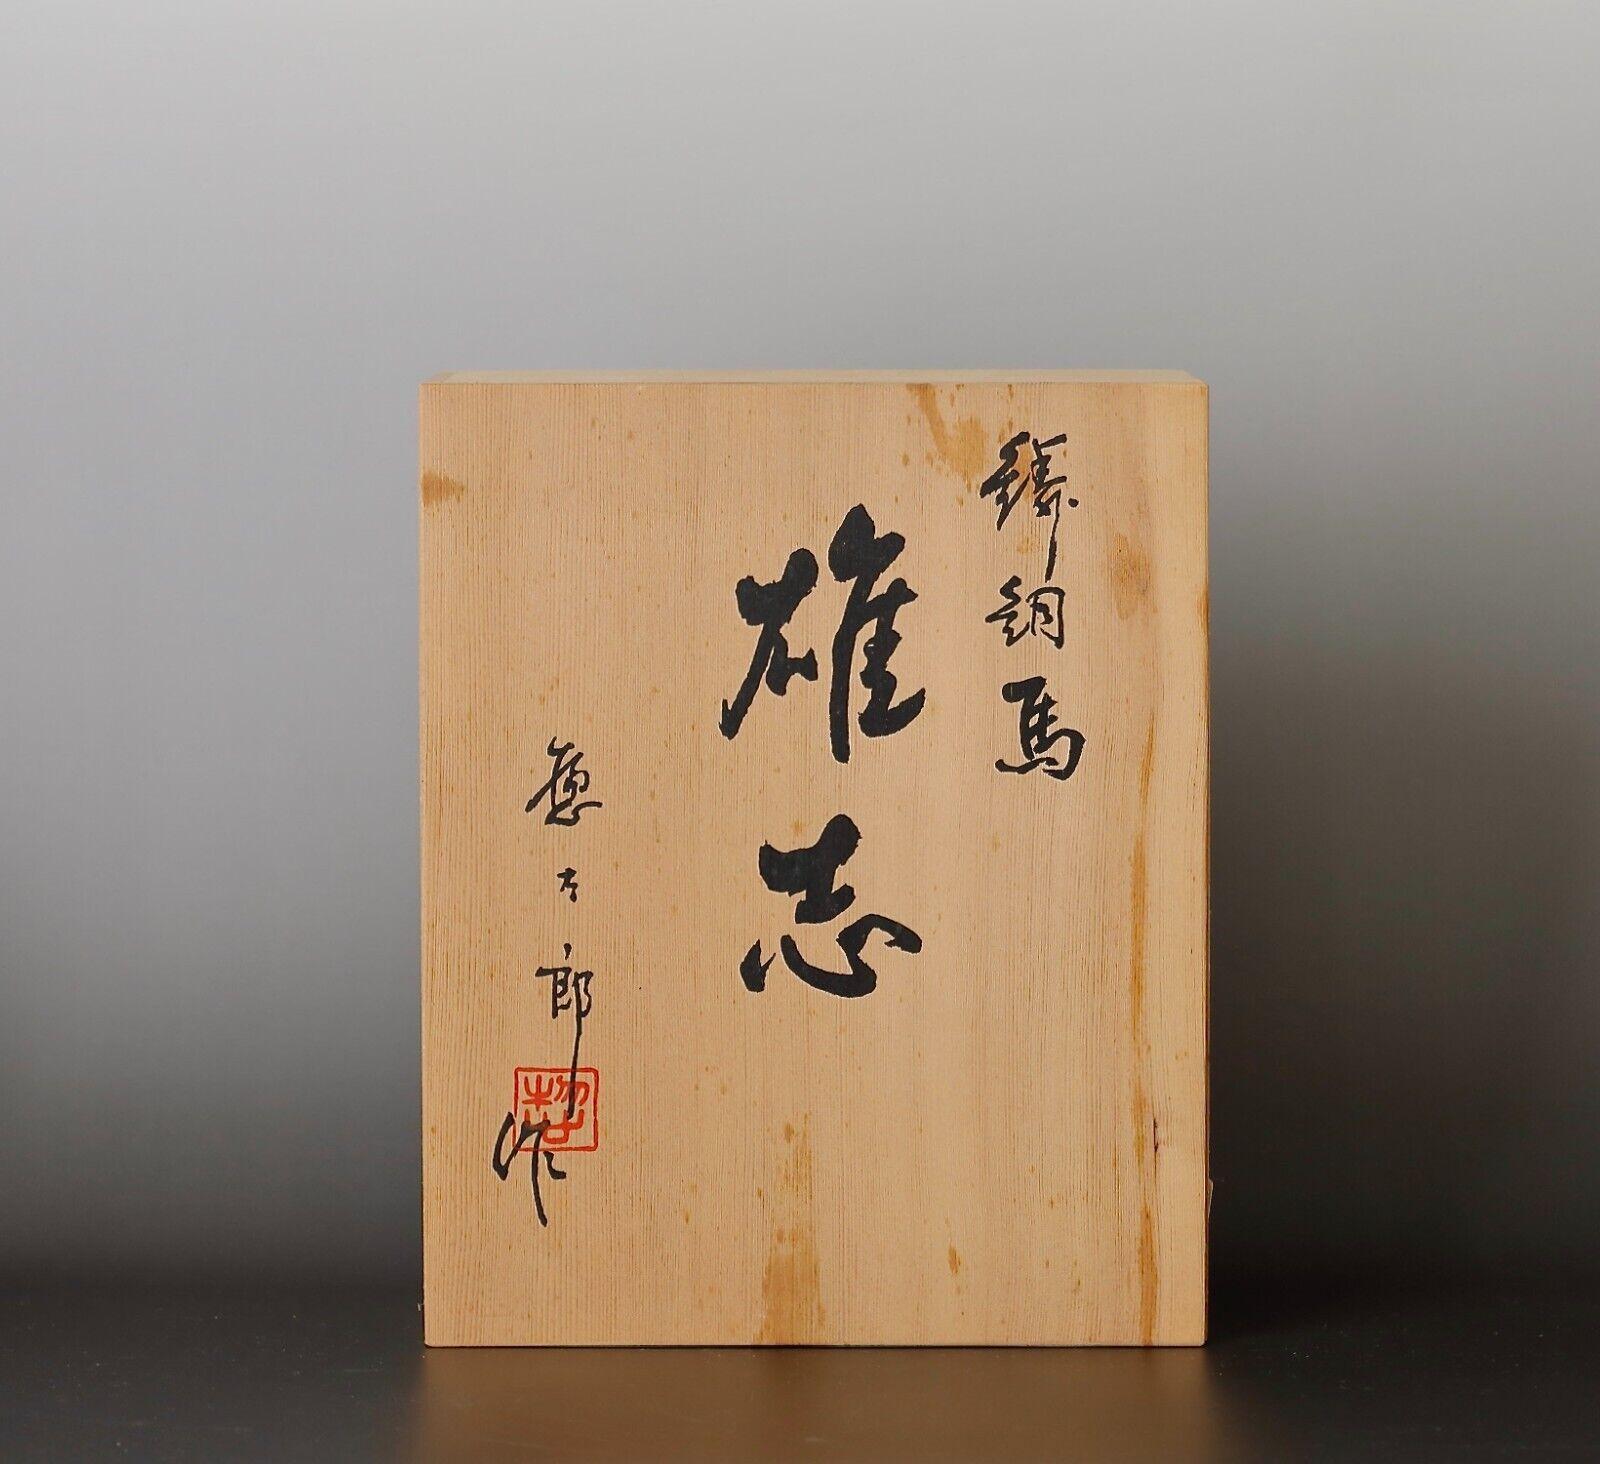 鋳銅馬
雄志
惣太郎作
惣